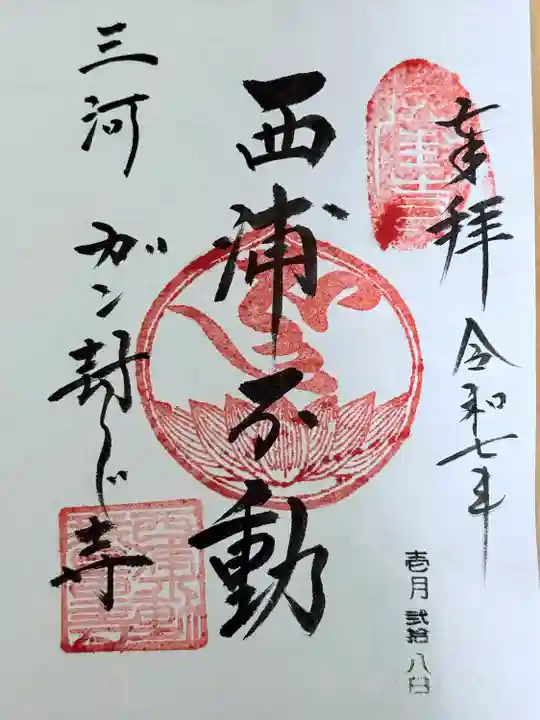 奉拝 令和七年
壱月 弐拾 八日
西浦不動
三河 ガン封じ寺